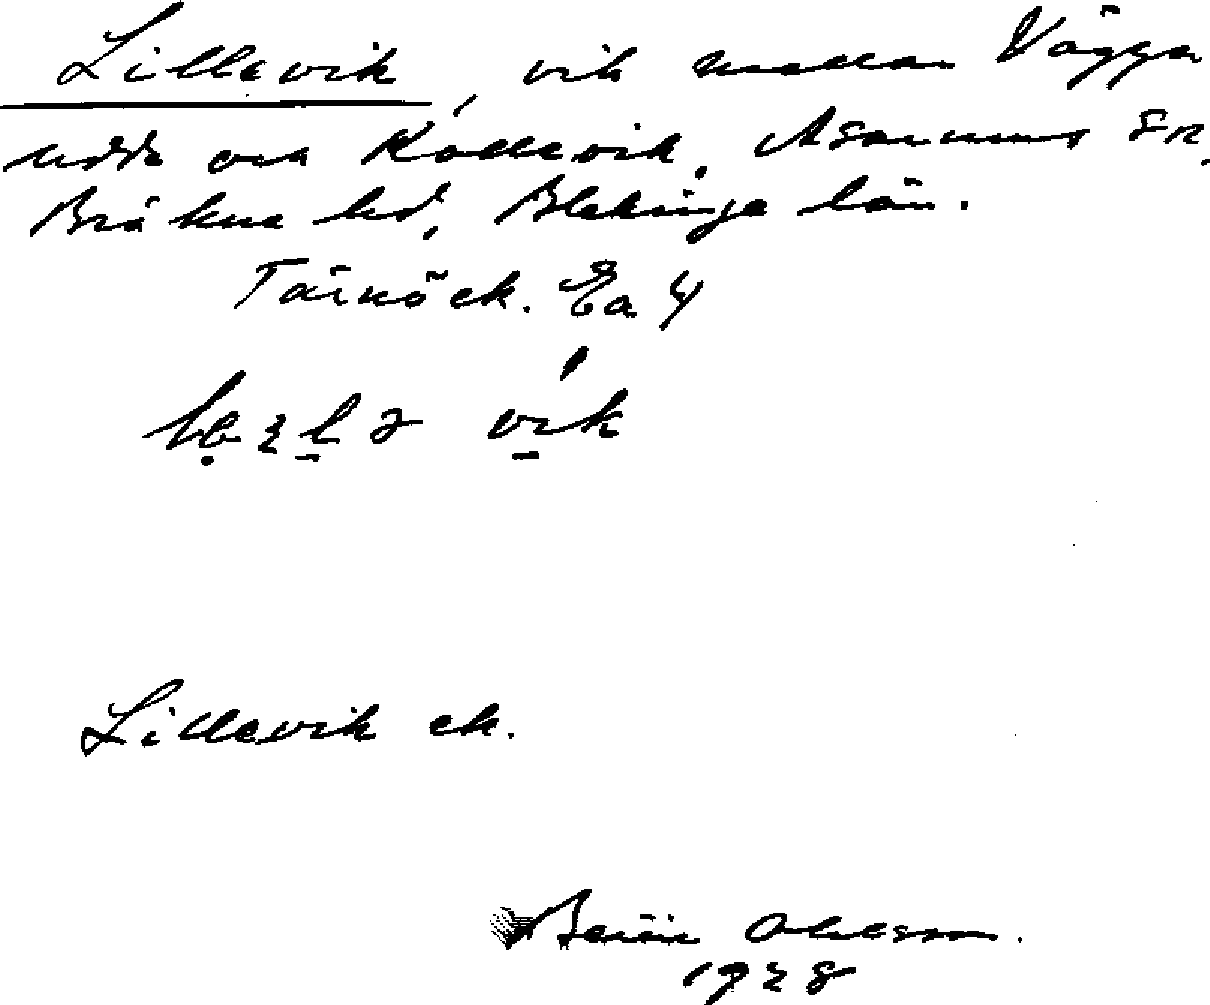 Lillevik, vik mellan Vägga
udde och Kollevik, Asarums sn,
Bräkne hd, Blekinge län.
Tärnö ek. Ea 4
vik
Lillevik ek.
Ohlsson.
1928